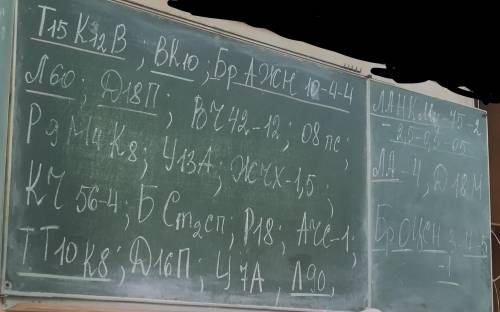 Т15К12В; ВК10; БрАЖН 10-4-4
Л60; Д18П; ВЧ42-12; 08пс;
Р9М4К8; У13А; ЖЧХ-1,5;
КЧ 56-4; БСт2сп; Р18; АЧС-1;
ТТ10К8; Д16П; У7А, Л90,
ЛАНКМц 75-2
-2,5-0,5-0,5
ЛА-4, Д18М
БрОЦСН 3-4-5
-1